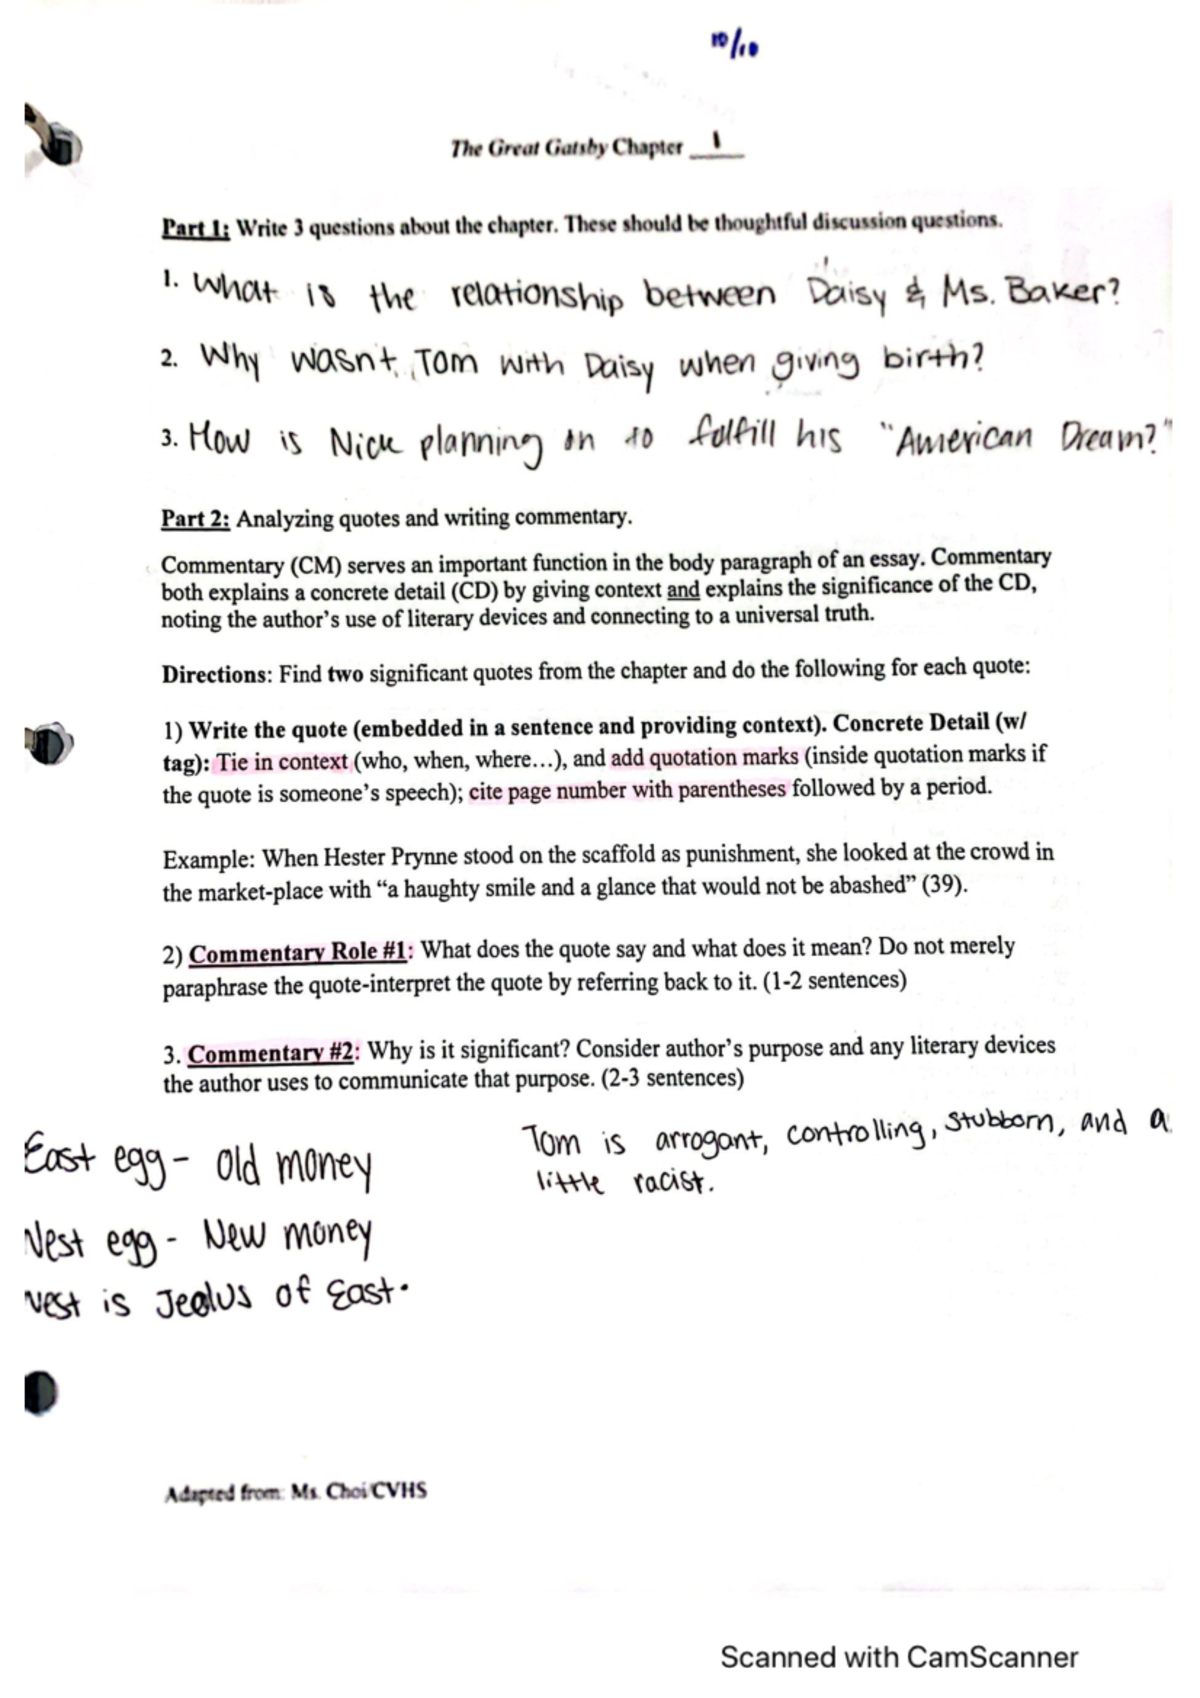 10/10
The Great Gatsby Chapter 1
Part 1: Write 3 questions about the chapter. These should be thoughtful discussion questions.
1. What is the relationship between Daisy & Ms. Baker?
2. Why wasn't Tom with Daisy when giving birth?
3. How is Nick planning on to fulfill his "American Dream?"
Part 2: Analyzing quotes and writing commentary.
Commentary (CM) serves an important function in the body paragraph of an essay. Commentary
both explains a concrete detail (CD) by giving context and explains the significance of the CD,
noting the author's use of literary devices and connecting to a universal truth.
Directions: Find two significant quotes from the chapter and do the following for each quote:
1) Write the quote (embedded in a sentence and providing context). Concrete Detail (w/
tag): Tie in context (who, when, where…), and add quotation marks (inside quotation marks if
the quote is someone's speech); cite page number with parentheses followed by a period.
Example: When Hester Prynne stood on the scaffold as punishment, she looked at the crowd in
the market-place with “a haughty smile and a glance that would not be abashed” (39).
2) Commentary Role #1: What does the quote say and what does it mean? Do not merely
paraphrase the quote-interpret the quote by referring back to it. (1-2 sentences)
3. Commentary #2: Why is it significant? Consider author's purpose and any literary devices
the author uses to communicate that purpose. (2-3 sentences)
East egg - old money
West egg - New money
West is Jealus of East.
Tom is arrogant, controlling, stubborn, and a
little racist.
Adapted from: Ms. Choi/CVHS
Scanned with CamScanner